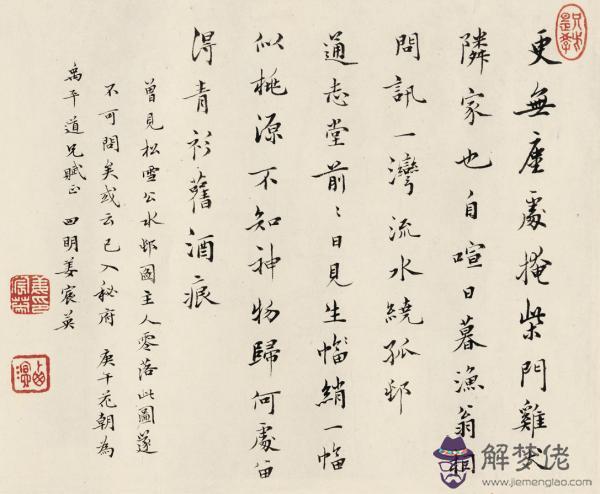 更無塵處掩柴門雞犬
隣家也自喧日暮漁翁相
問訊一灣流水繞孤邨
通志堂前〻日見生幅綃一幅
似桃源不知神物歸何處留
得青衫舊酒痕
曾見松雪公水邨圖主人零落此圖遂
不可問矣或云已入秘府 庚午花朝為
禹平道兄賦正 四明姜宸英
解梦佬
www.jiemenglao.com